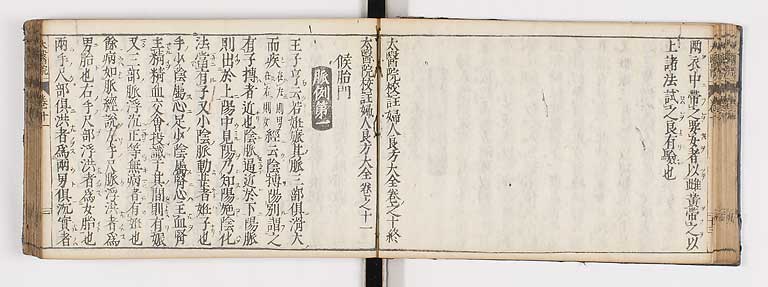 兩衣中帶之要女者以雌黃帶之以
上諸法試之良有驗也
太醫院校註婦人良方大全卷之十終
太醫院校註婦人良方大全卷之十二
候胎門
脈例第一
王子亨云若妊脈其脈三部俱滑大
而疾在左則男在右則女經云陰搏陽別謂之
有子搏者近也陰脈逼近於下陽脈
則出於上陽中見陽乃知陽施陰化
法當有子又少陰脈動甚者妊子也
手少陰屬心足少陰屬腎心主血腎
主精精血交會投識于其間則有娠
又三部脈浮沉正等無病者有妊也
餘病如脈經說左手尺脈浮洪者為
男胎也右手尺部浮洪者為女胎也
兩手尺部俱洪者為兩男俱沉實者